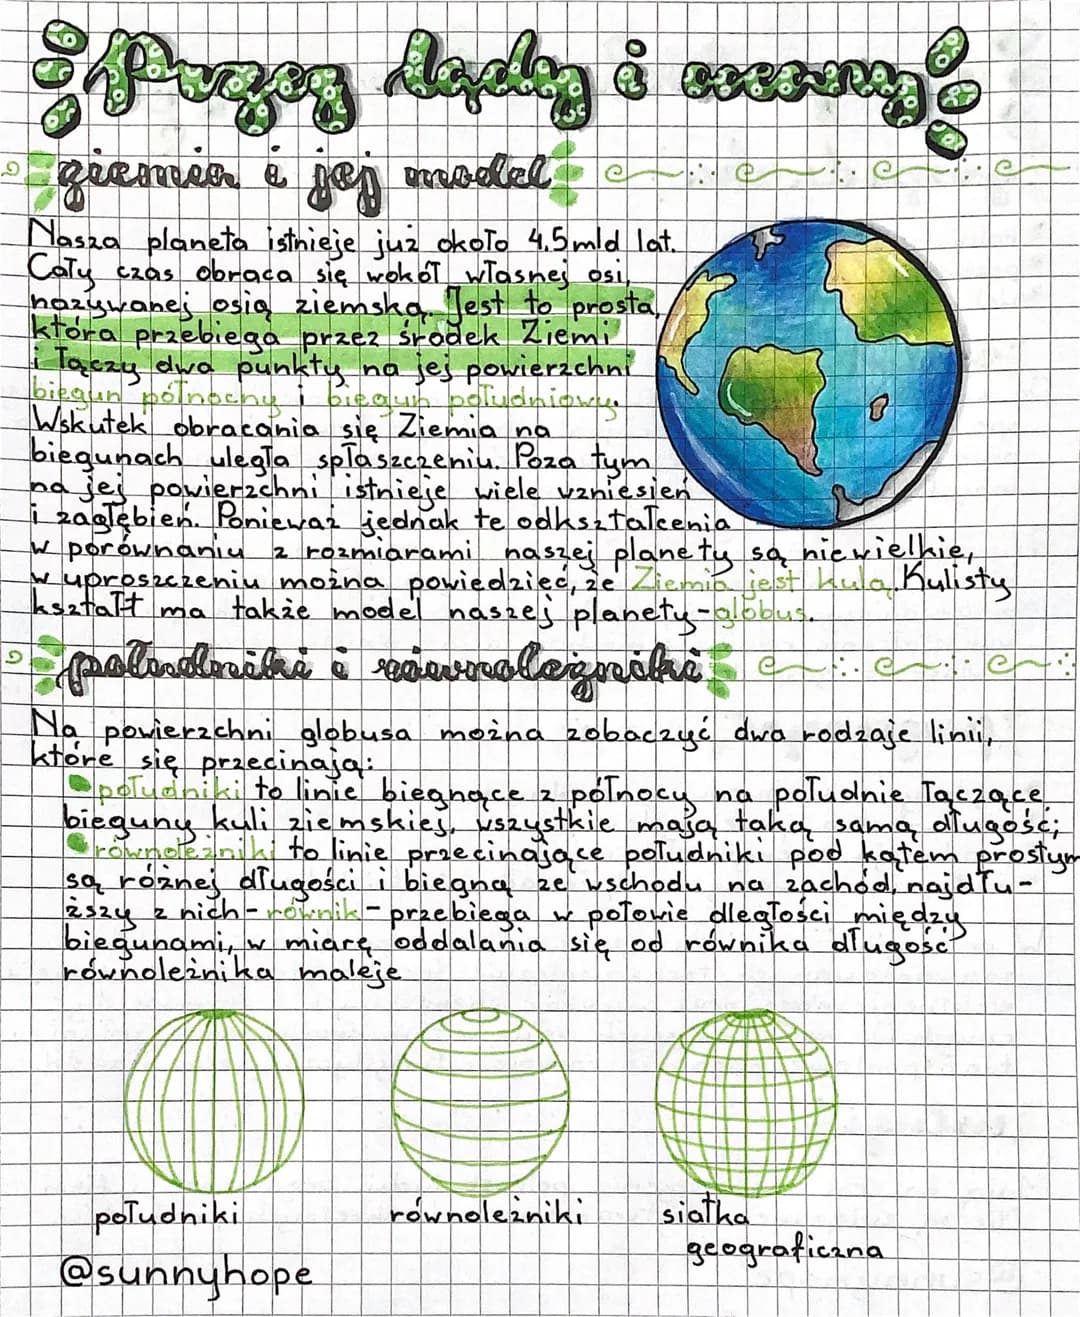 Przez lądy i oceany
ziemia i jej model
Nasza planeta istnieje już około 4,5mld lat.
Cały czas obraca się wokół własnej osi,
nazywanej osią ziemską. Jest to prosta,
która przebiega przez środek Ziemi
i łączy dwa punkty na jej powierzchni
biegun północny i biegun południowy.
Wskutek obracania się Ziemia na
biegunach uległa spłaszczeniu. Poza tym
na jej powierzchni istnieje wiele wzniesień
i zagłębień. Ponieważ jednak te odkształcenia
w porównaniu z rozmiarami naszej planety są niewielkie,
w uproszczeniu można powiedzieć, że Ziemia jest kulą. Kulisty
kształt ma także model naszej planety-globus.
południki i równoleżniki
Na powierzchni globusa można zobaczyć dwa rodzaje linii,
które się przecinają:
południki to linie biegnące z północy na południe łączące
bieguny kuli ziemskiej, wszystkie mają taką samą długość;
równoleżniki to linie przecinające południki pod kątem prostym
są różnej długości i biegną ze wschodu na zachód, najdłu-
ższy z nich-równik-przebiega w połowie dległości między
biegunami, w miarę oddalania się od równika długość
równoleżnika maleje
południki
równoleżniki
siatka
geograficzna
@sunnyhope